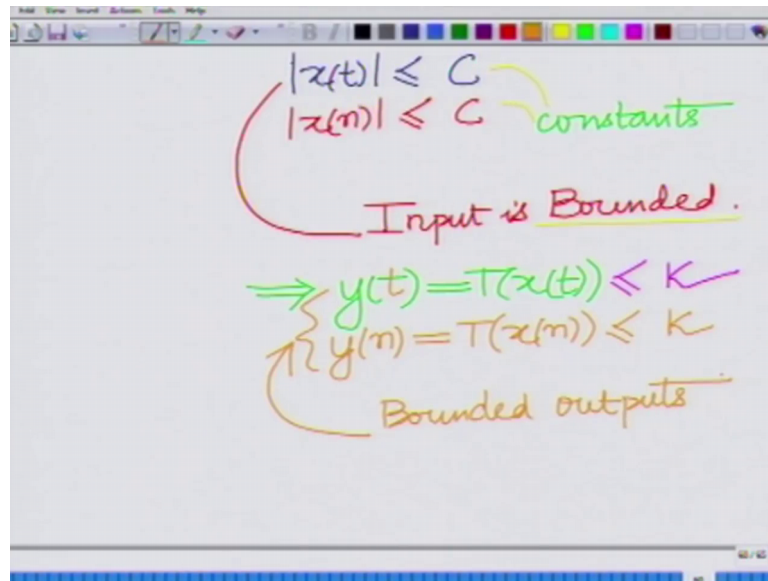 Edit View Insert Actions Tools Help
|x(t)| ⩽ C
|x(n)| ⩽ C constants
Input is Bounded.
⇒ y(t) = T(x(t)) ⩽ K
y(n) = T(x(n)) ⩽ K
Bounded outputs